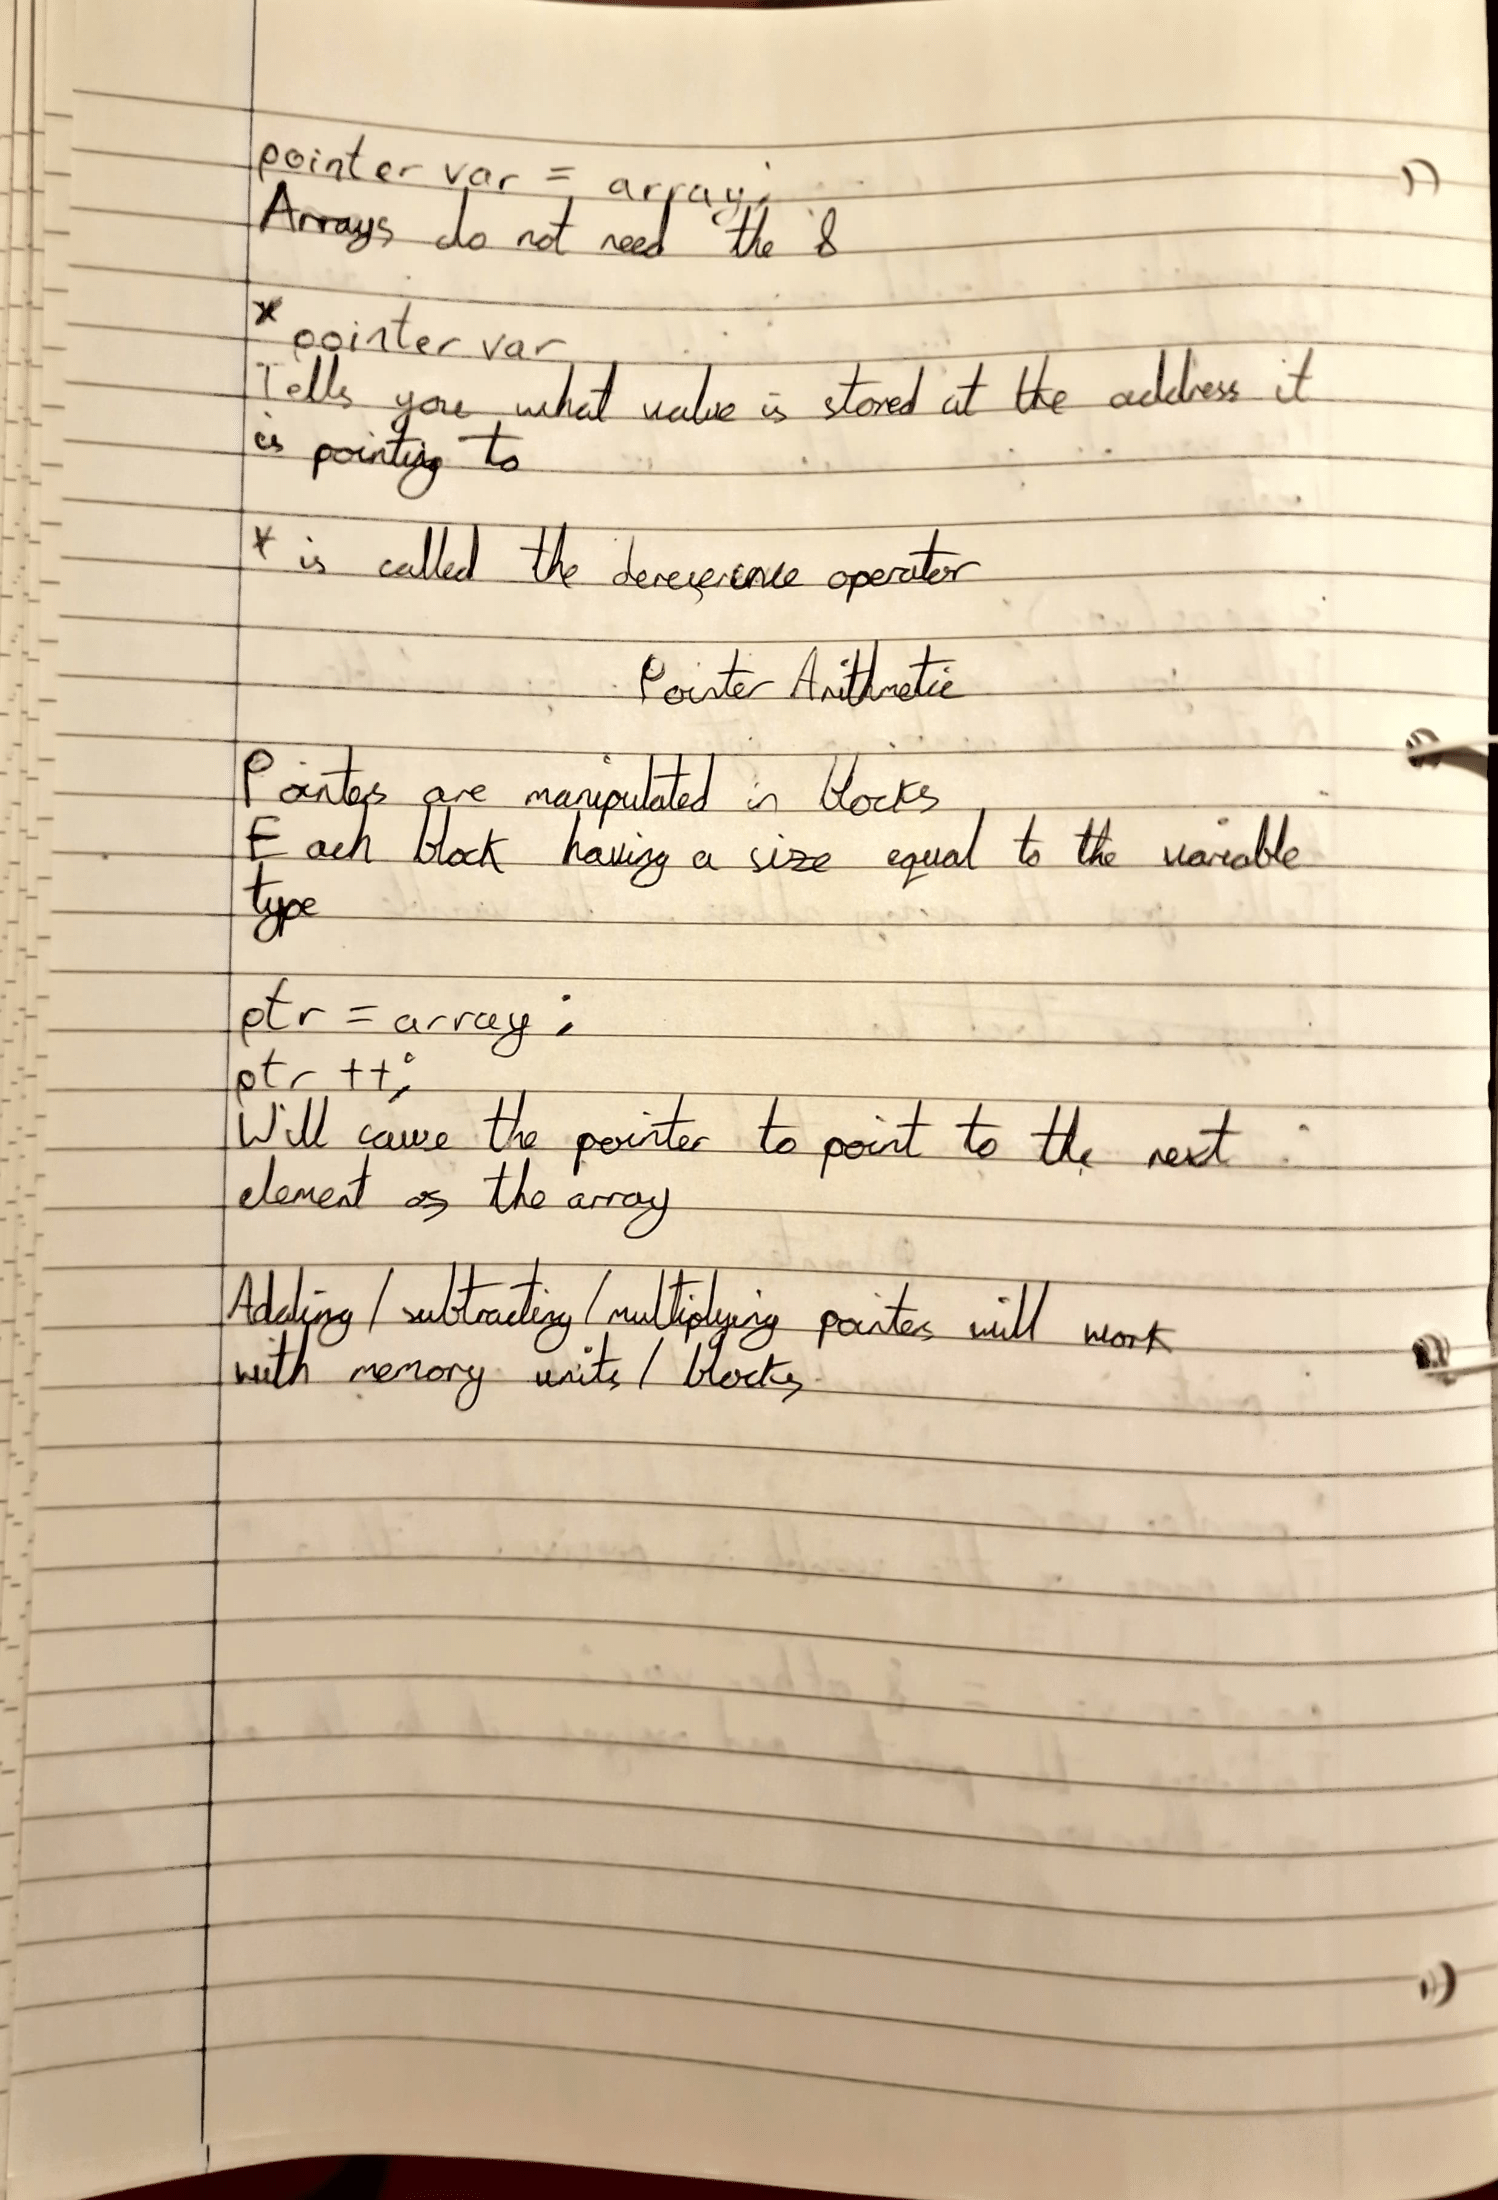 pointer var = array;
Arrays do not need the &
* pointer var
Tells you what value is stored at the address it
is pointing to
* is called the dereference operator
Pointer Arithmetic
Pointers are manipulated in blocks
Each block having a size equal to the variable
type
ptr = array;
ptr ++;
Will cause the pointer to point to the next
element of the array
Adding / subtracting / multiplying pointers will work
with memory units / blocks